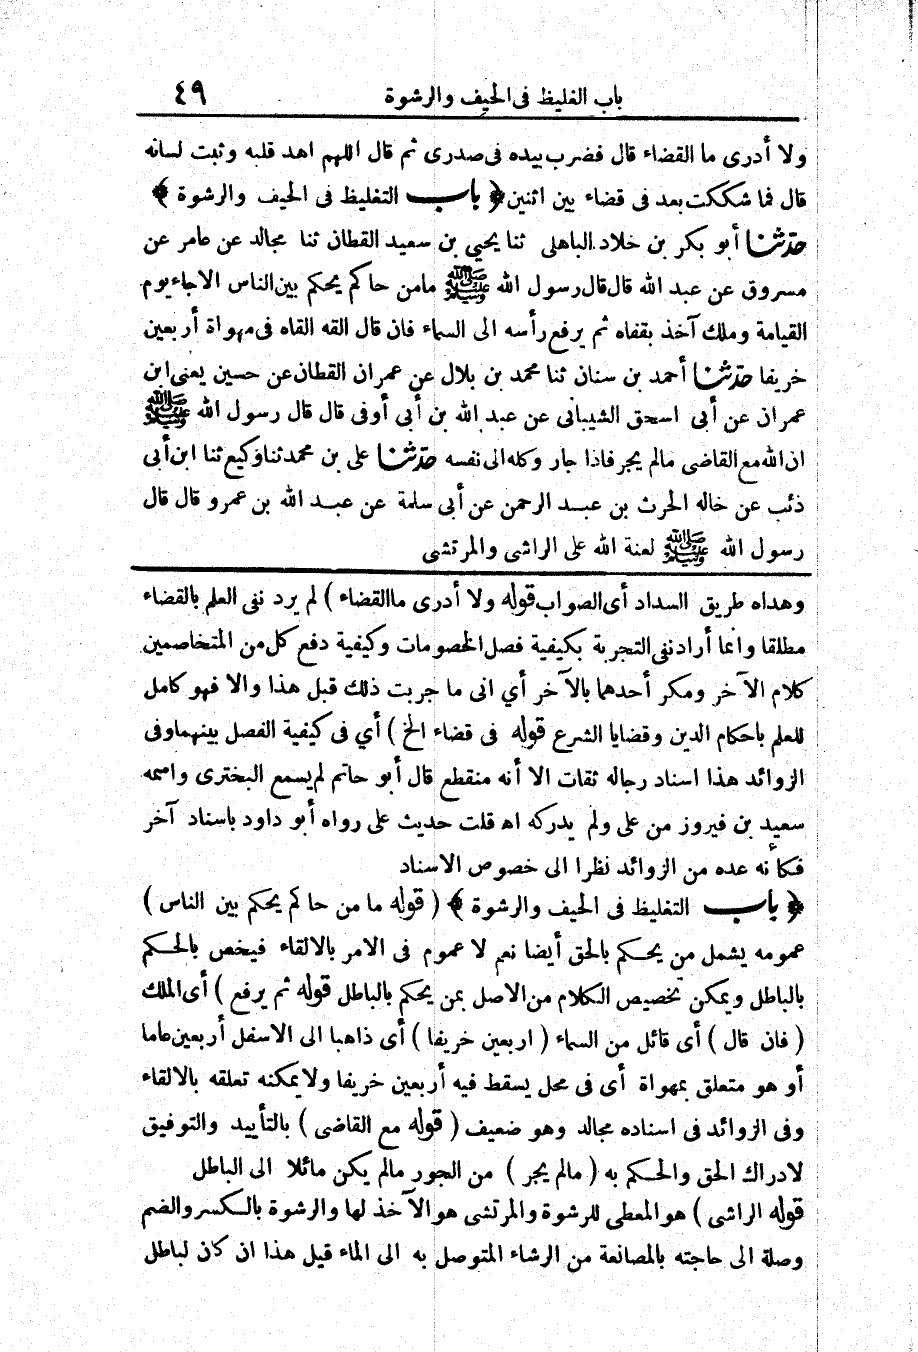 باب الغليظ فى الحيف والرشوة ٤٩
ولا أدرى ما القضاء قال فضرب بيده فى صدرى ثم قال اللهم اهد قلبه وثبت لسانه
قال فما شككت بعد فى قضاء بين اثنين ﴿ باب التغليظ فى الحيف والرشوة ﴾
حدّثنا أبو بكر بن خلاد الباهلى ثنا يحيي بن سعيد القطان ثنا مجالد عن عامر عن
مسروق عن عبد الله قال قال رسول الله ﷺ مامن حاكم يحكم بين الناس الا جاء يوم
القيامة وملك آخذ بقفاه ثم يرفع رأسه الى السماء فان قال القه القاه فى مهواة أربعين
خريفا حدّثنا أحمد بن سنان ثنا محمد بن بلال عن عمران القطان عن حسين يعنى ابن
عمران عن أبى اسحق الشيبانى عن عبد الله بن أبى أوفى قال قال رسول الله ﷺ
ان الله مع القاضى مالم يجر فاذا جار وكله الى نفسه حدّثنا على بن محمد ثنا وكيع ثنا ابن أبى
ذئب عن خاله الحرث بن عبد الرحمن عن أبى سلمة عن عبد الله بن عمرو قال قال
رسول الله ﷺ لعنة الله على الراشى والمرتشى
وهداه طريق السداد أى الصواب قوله ولا أدرى ما القضاء ) لم يرد نفى العلم بالقضاء
مطلقا وانما أراد نفى التجربة بكيفية فصل الخصومات وكيفية دفع كل من المتخاصمين
كلام الآخر ومكر أحدهما بالآخر أي انى ما جربت ذلك قبل هذا والا فهو كامل
للعلم باحكام الدين وقضايا الشرع قوله فى قضاء الخ ) أي فى كيفية الفصل بينهما وفى
الزوائد هذا اسناد رجاله ثقات الا أنه منقطع قال أبو حاتم لم يسمع البخترى واسمه
سعيد بن فيروز من على ولم يدركه اه قلت حديث على رواه أبو داود باسناد آخر
فكأنه عده من الزوائد نظرا الى خصوص الاسناد
﴿ باب التغليظ فى الحيف والرشوة ﴾ ( قوله ما من حاكم يحكم بين الناس )
عمومه يشمل من يحكم بالحق أيضا نعم لا عموم فى الامر بالالقاء فيخص بالحكم
بالباطل ويمكن تخصيص الكلام من الاصل بمن يحكم بالباطل قوله ثم يرفع ) أى الملك
( فان قال ) أى قائل من السماء ( اربعين خريفا ) أى ذاهبا الى الاسفل أربعين عاما
أو هو متعلق بمهواة أى فى محل يسقط فيه أربعين خريفا ولا يمكنه تعلقه بالالقاء
وفى الزوائد فى اسناده مجالد وهو ضعيف ( قوله مع القاضى ) بالتأييد والتوفيق
لادراك الحق والحكم به ( مالم يجر ) من الجور مالم يكن مائلا الى الباطل
قوله الراشى ) هو المعطى للرشوة والمرتشى هو الآخذ لها والرشوة بالكسر والضم
وصلة الى حاجته بالمصانعة من الرشاء المتوصل به الى الماء قيل هذا ان كان لباطل